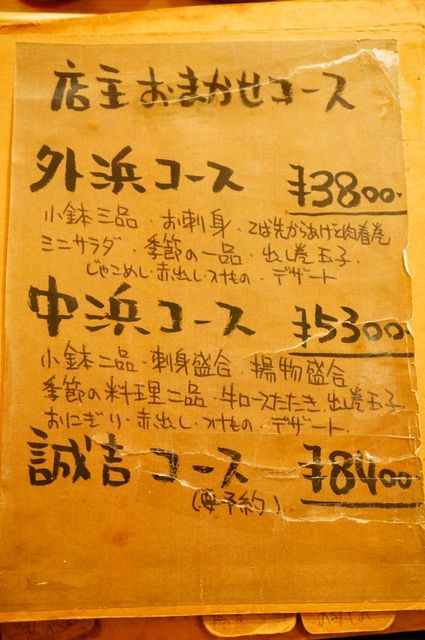 店主おまかせコース
外浜コース ¥3800-
小鉢三品・お刺身・てば先からあげと肉春巻
ミニサラダ・季節の一品・出し巻玉子・
じゃこめし・赤出し・つけもの・デザート
中浜コース ¥5300-
小鉢二品・刺身盛合・揚物盛合
季節の料理二品・牛ロースたたき・出し巻玉子
おにぎり・赤出し・つけもの・デザート・
誠吉コース ¥8400-
(要予約)